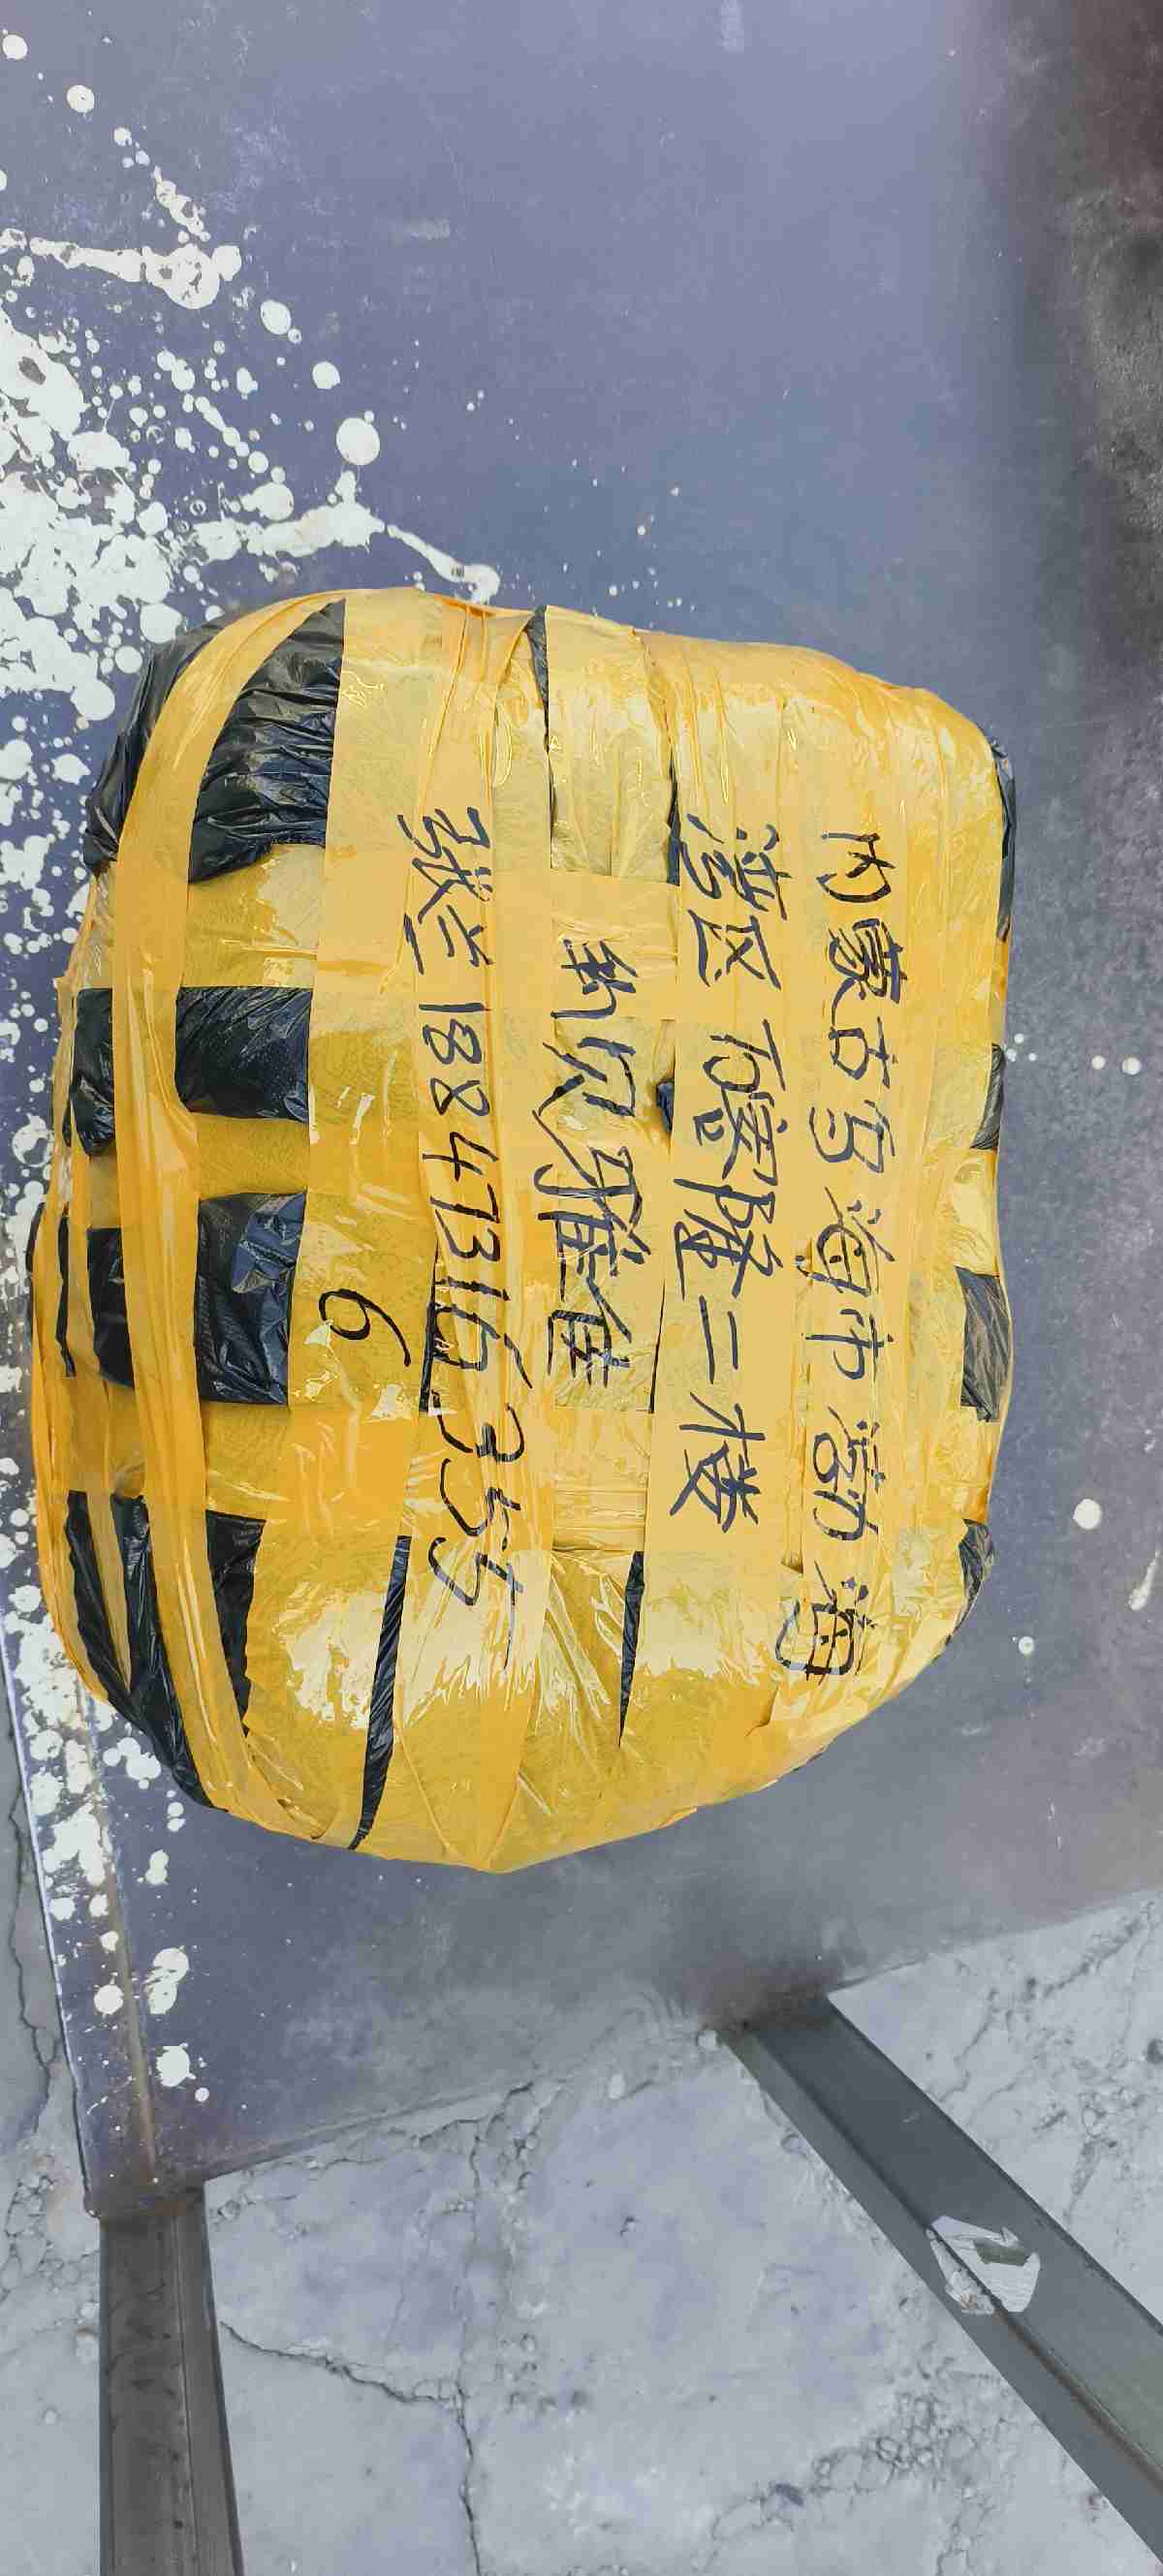 内蒙古乌海市渤海
湾区万隆二楼
贝雅佳
张兰 18847316355
6